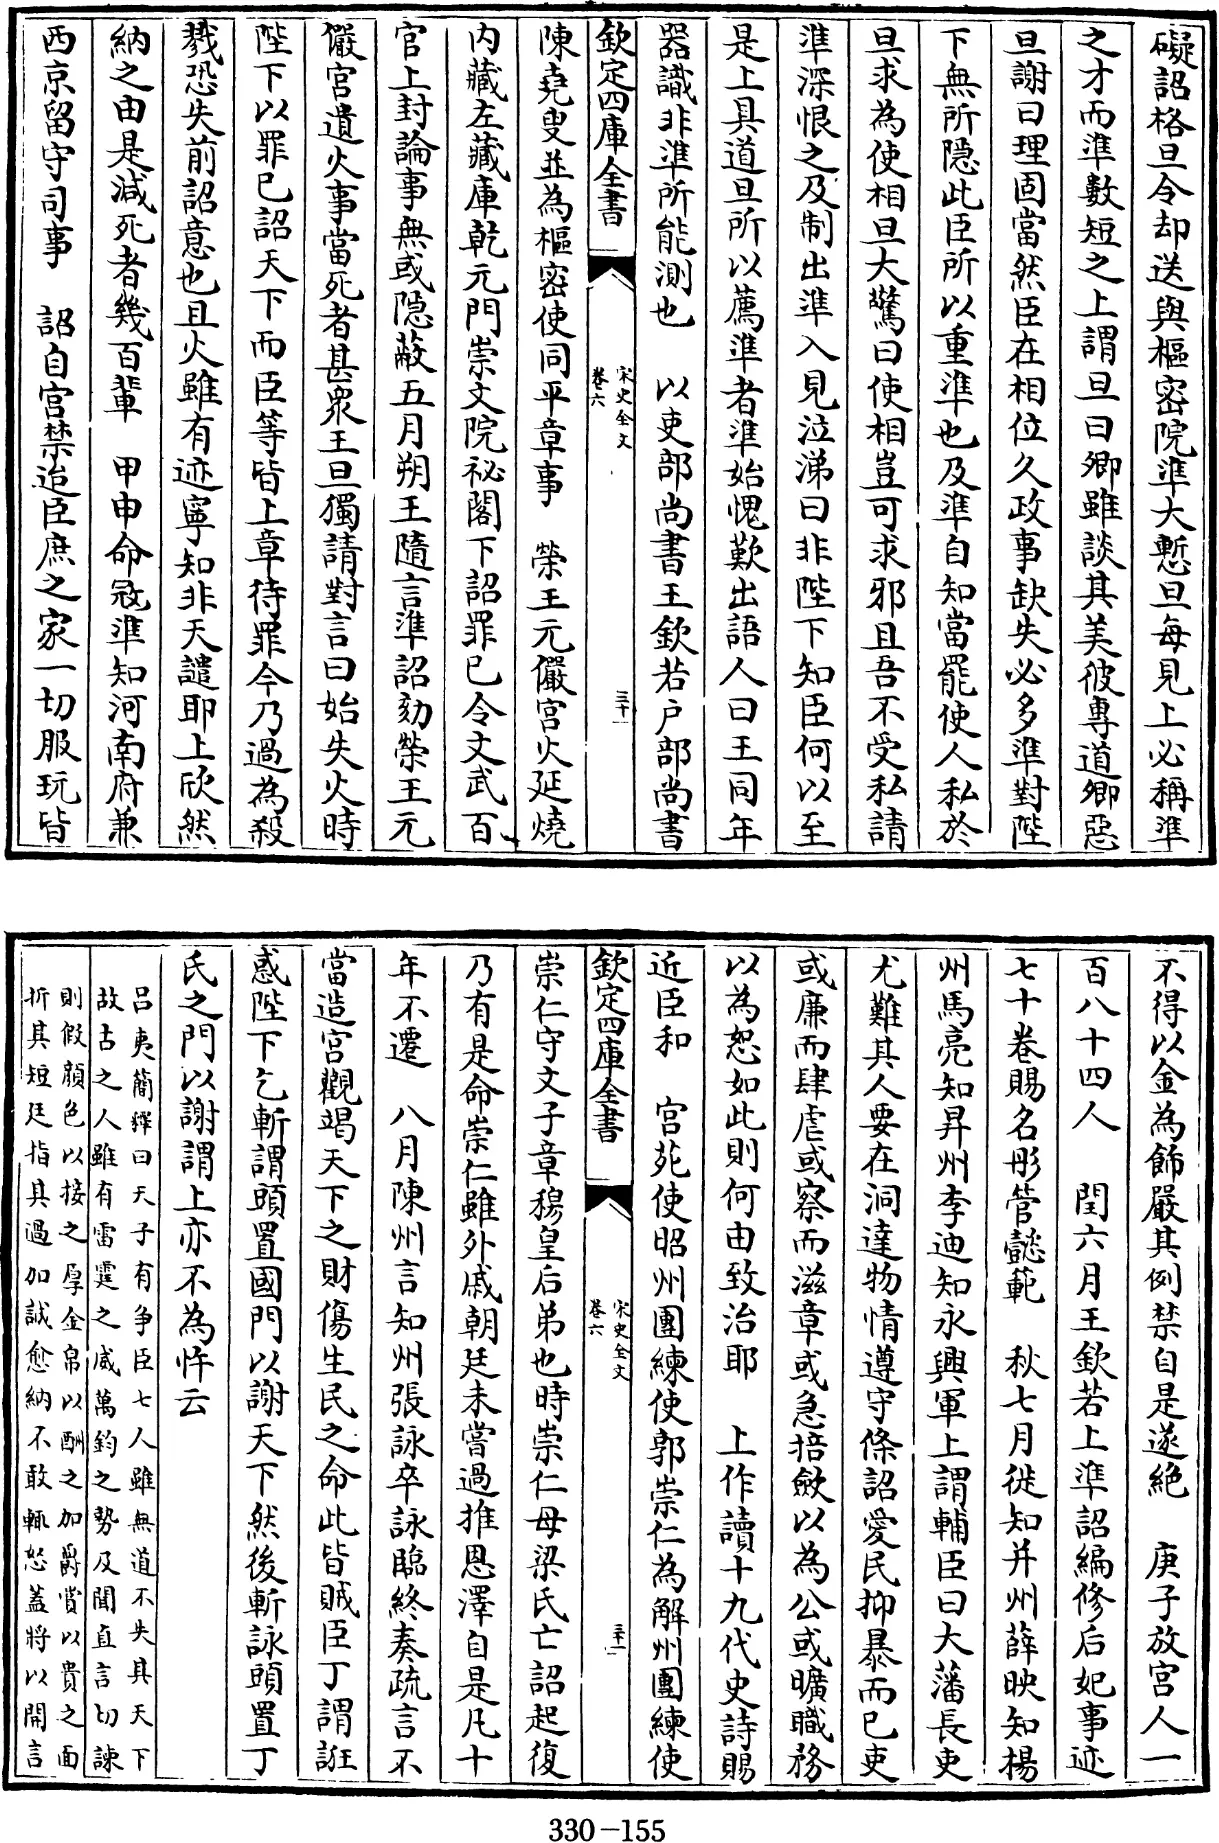 礙詔格旦令却送與樞密院準大慙旦每見上必稱準
之才而準數短之上謂旦曰卿雖談其美彼專道卿惡
旦謝曰理固當然臣在相位久政事缺失必多準對陛
下無所隠此臣所以重準也及準自知當罷使人私於
旦求為使相旦大驚曰使相豈可求邪且吾不受私請
準深恨之及制出準入見泣涕曰非陛下知臣何以至
是上具道旦所以薦準者準始愧歎出語人曰王同年
器識非準所能測也　以吏部尚書王欽若户部尚書
欽定四庫全書　宋史全文　卷六　三十
陳堯叟並為樞密使同平章事　榮王元儼宮火延燒
内藏左藏庫乾元門崇文院祕閣下詔罪己令文武百
官上封論事無或隠蔽五月朔王隨言準詔劾榮王元
儼宮遺火事當死者甚衆王旦獨請對言曰始失火時
陛下以罪己詔天下而臣等皆上章待罪今乃過為殺
戮恐失前詔意也且火雖有迹寧知非天譴耶上欣然
納之由是減死者幾百輩　甲申命冦準知河南府兼
西京留守司事　詔自宫禁迨臣庶之家一切服玩皆
不得以金為飾嚴其例禁自是遂絶　庚子放宫人一
百八十四人　閏六月王欽若上準詔編修后妃事迹
七十卷賜名彤管懿範　秋七月徙知并州薛映知揚
州馬亮知昇州李迪知永興軍上謂輔臣曰大藩長吏
尤難其人要在洞達物情遵守條詔愛民抑暴而已吏
或廉而肆虐或察而滋章或急掊斂以為公或曠職務
以為恕如此則何由致治耶　上作讀十九代史詩賜
近臣和　宫苑使昭州團練使郭崇仁為解州團練使
欽定四庫全書　宋史全文　卷六　三十一
崇仁守文子章穆皇后弟也時崇仁母梁氏亡詔起復
乃有是命崇仁雖外戚朝廷未嘗過推恩澤自是凡十
年不遷　八月陳州言知州張詠卒詠臨終奏疏言不
當造宫觀竭天下之財傷生民之命此皆賊臣丁謂誑
惑陛下乞斬謂頭置國門以謝天下然後斬詠頭置丁
氏之門以謝謂上亦不為忤云
吕夷簡釋曰天子有争臣七人雖無道不失其天下
故古之人雖有雷霆之威萬鈞之勢及聞直言切諫
則假顔色以接之厚金帛以酬之加爵賞以貴之面
折其短廷指其過加誠愈納不敢輒怒蓋將以開言
330-155